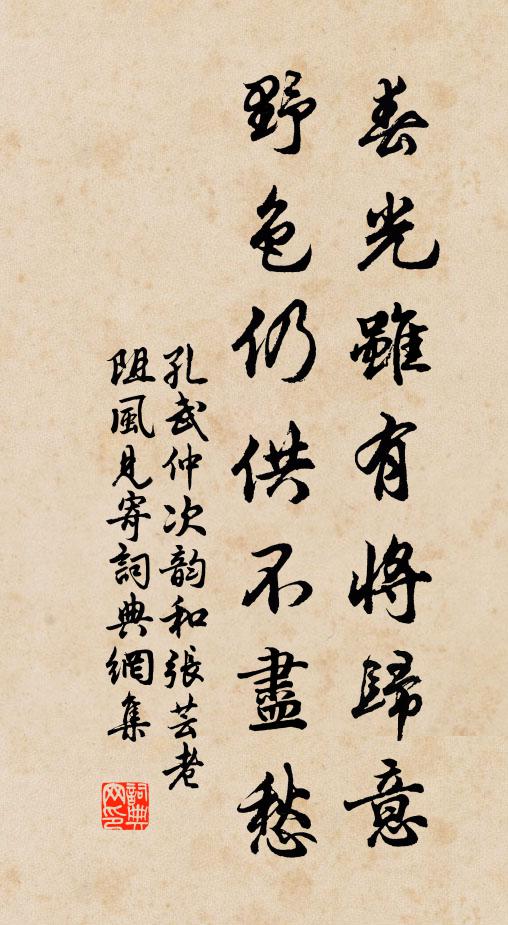 春光雖有將歸意
野色仍供不盡愁
孔武仲次韵和張芸老
阻風見寄詞典網集
詞典
网印